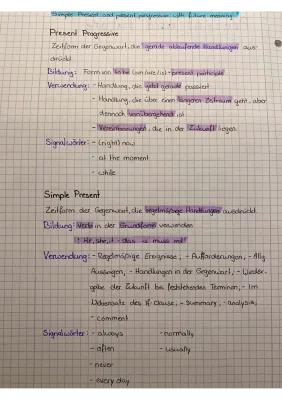 Simple Present and present progressive with future meaning
Present Progressive
Zeitform der Gegenwart, die gerade ablaufende Handlungen aus-
drückt
Bildung: Form von to be (am/are/is) + present participle
Verwendung: - Handlung, die jetzt gerade passiert
- Handlung, die über einen längeren Zeitraum geht, aber
dennoch vorübergehend ist
- Vereinbarungen, die in der Zukunft liegen
Signalwörter: - (right) now
- at the moment
- while
Simple Present
Zeitform der Gegenwart, die regelmäßige Handlungen ausdrückt.
Bildung: Verb in der Grundform verwenden
! He, she, it - das -s muss mit!
Verwendung: - Regelmäßige Ereignisse, - Aufforderungen, - Allg.
Aussagen, - Handlungen in der Gegenwart, - Wieder-
gabe der Zukunft bei feststehenden Terminen, - Im
Nebensatz des If-Clause, - summary, - analysis,
- comment
Signalwörter: - always - normally
- often - usually
- never
- every day